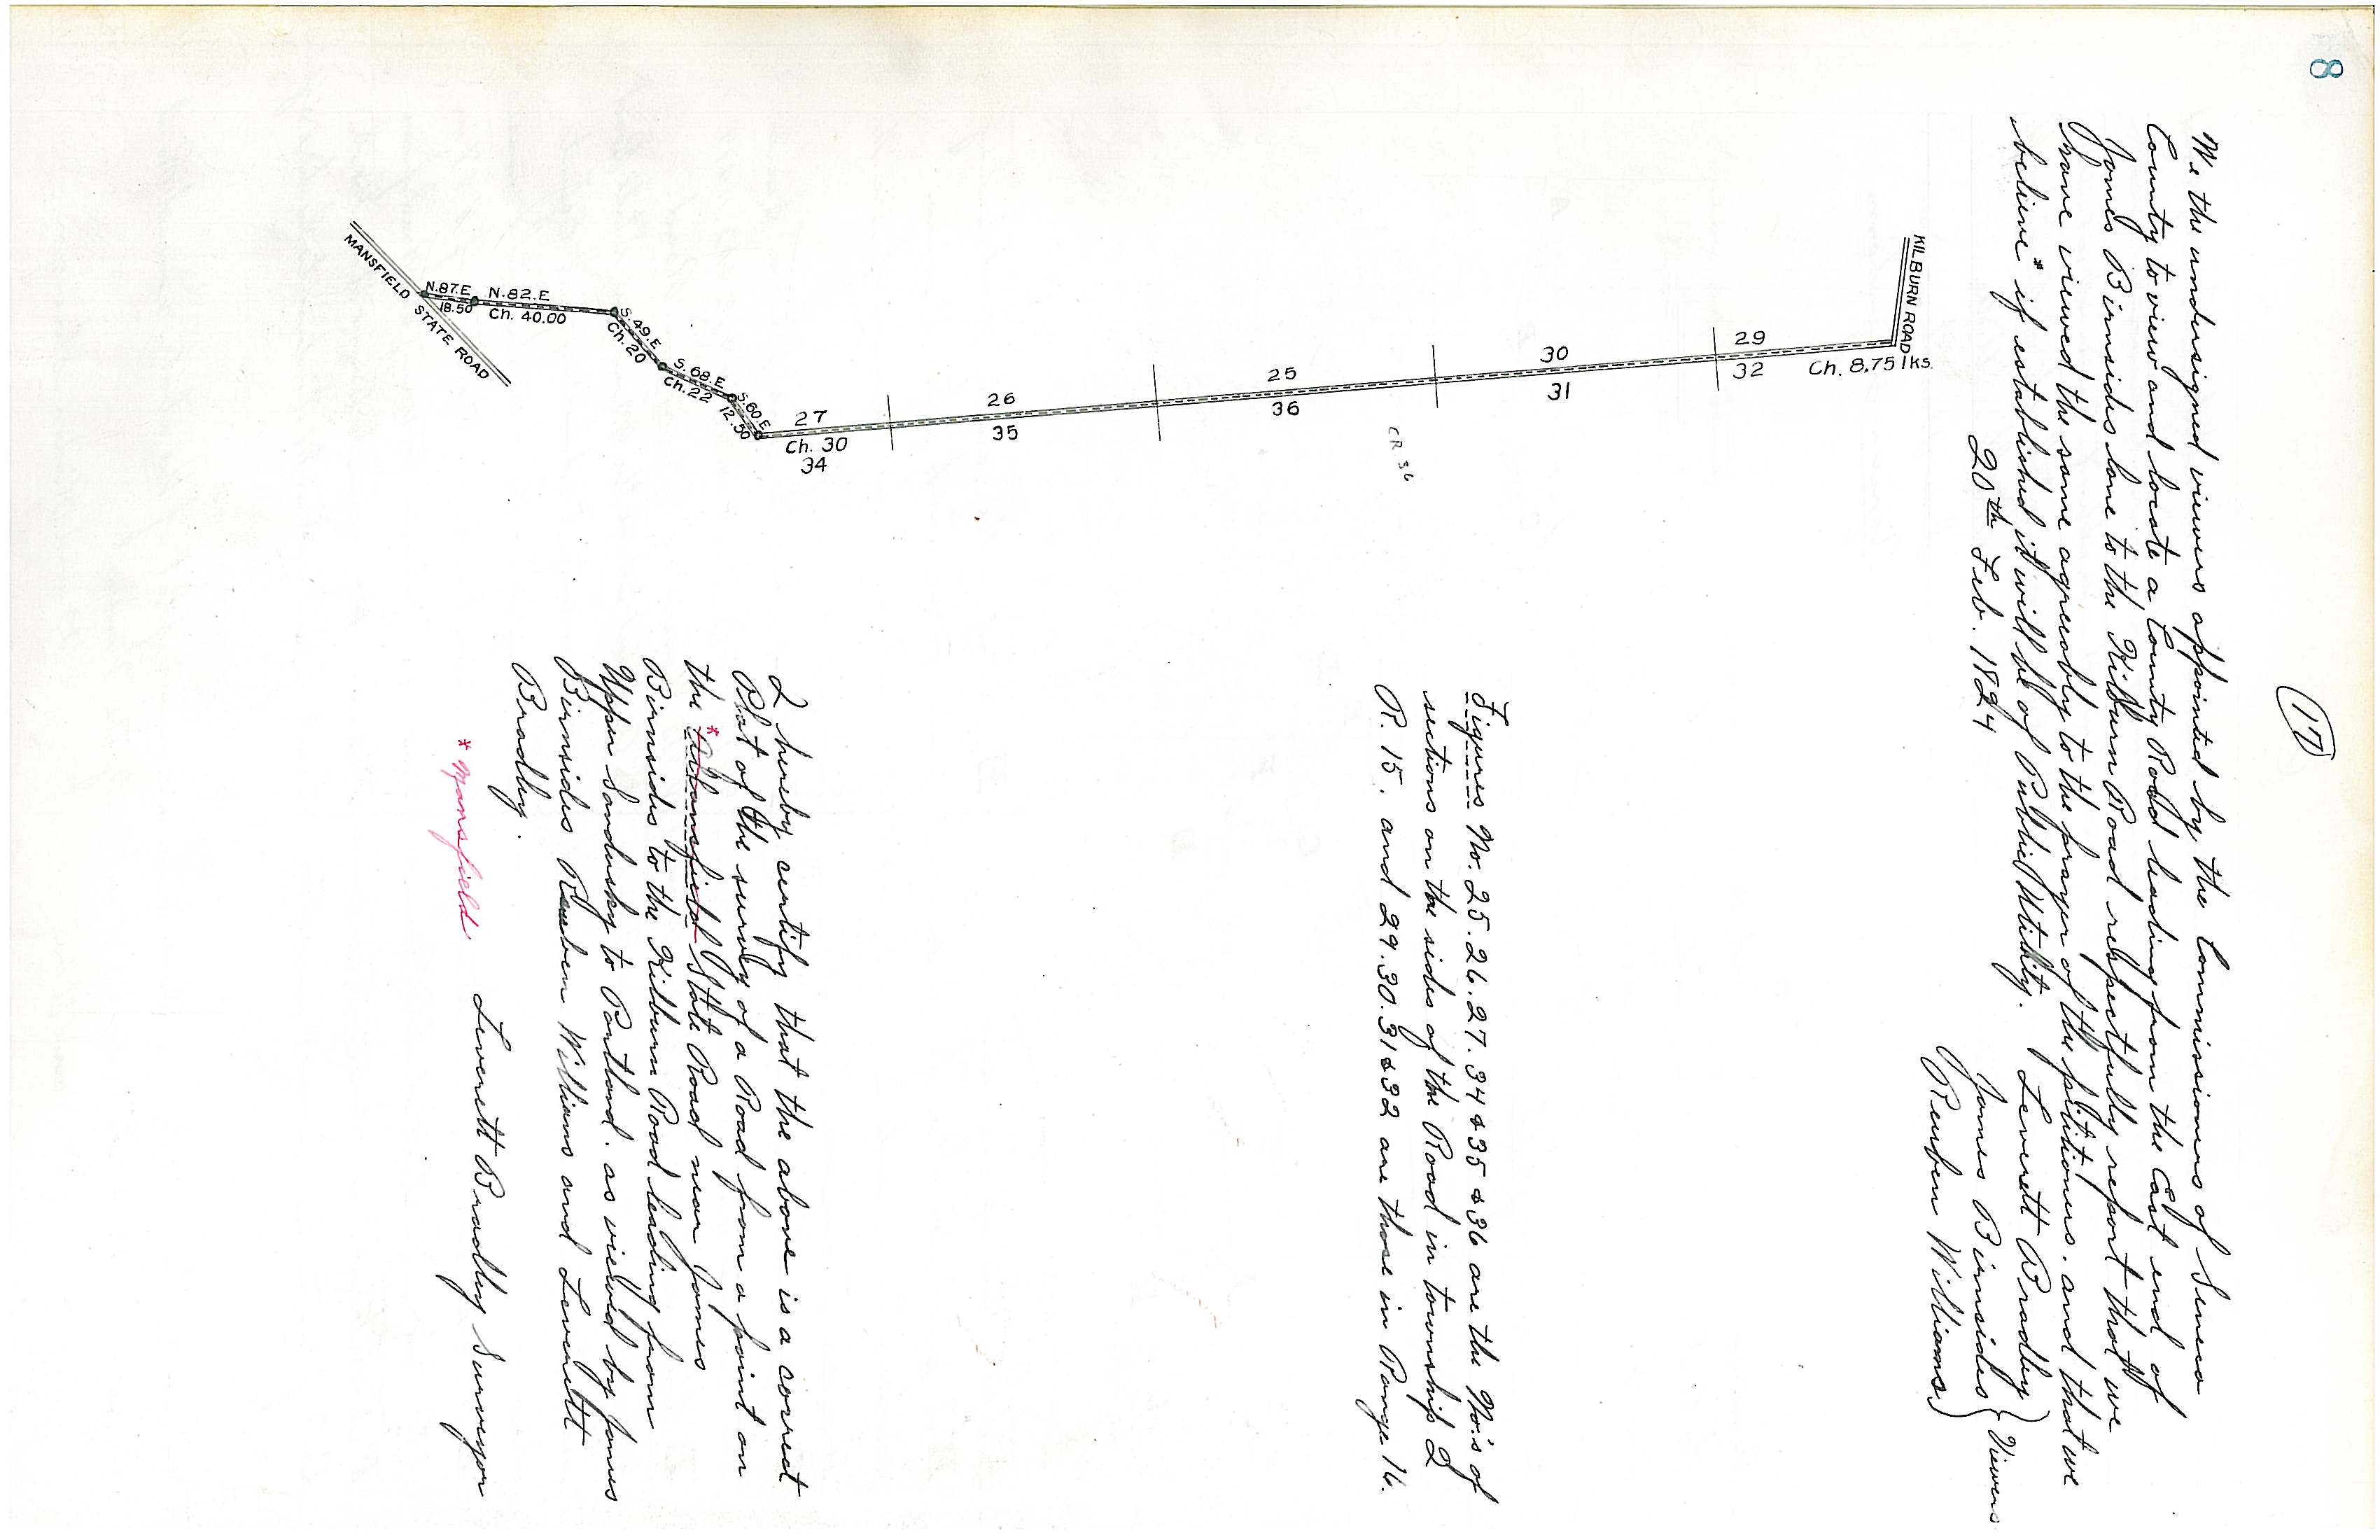 8
(17)
We the undersigned viewers appointed by the Commissioners of Seneca
County to view and locate a County Road leading from the East end of
James Birnsides lane to the Kilburn Road respectfully report that we
have viewed the same agreeably to the prayer of the petitioners. and that we
believe * if established it will be of Public Utility.
20th Feb. 1824
Leverett Bradley
James Birnsides
Reuben Williams
Viewers
KILBURN ROAD
29
32
Ch. 8,75 lks.
30
31
25
36
CR 36
26
35
27
Ch. 30
34
S. 60. E
12.50
S. 68. E
Ch. 22
S. 49. E
Ch. 20
N. 82. E
Ch. 40.00
N. 87. E
18.50
MANSFIELD STATE ROAD
Figures No. 25. 26. 27. 34 & 35 & 36 are the No.s of
sections on the sides of the Road in township 2
R. 15. and 29. 30. 31 & 32 are those in Range 16.
I hereby certify that the above is a correct
Plat of the survey of a Road from a point on
the * State Road near James
Birnsides to the Kilburn Road leading from
Upper Sandusky to Portland. as viewed by James
Birnsides Reuben Williams and Leverett
Bradley.
* Mansfield
Leverett Bradley Surveyor